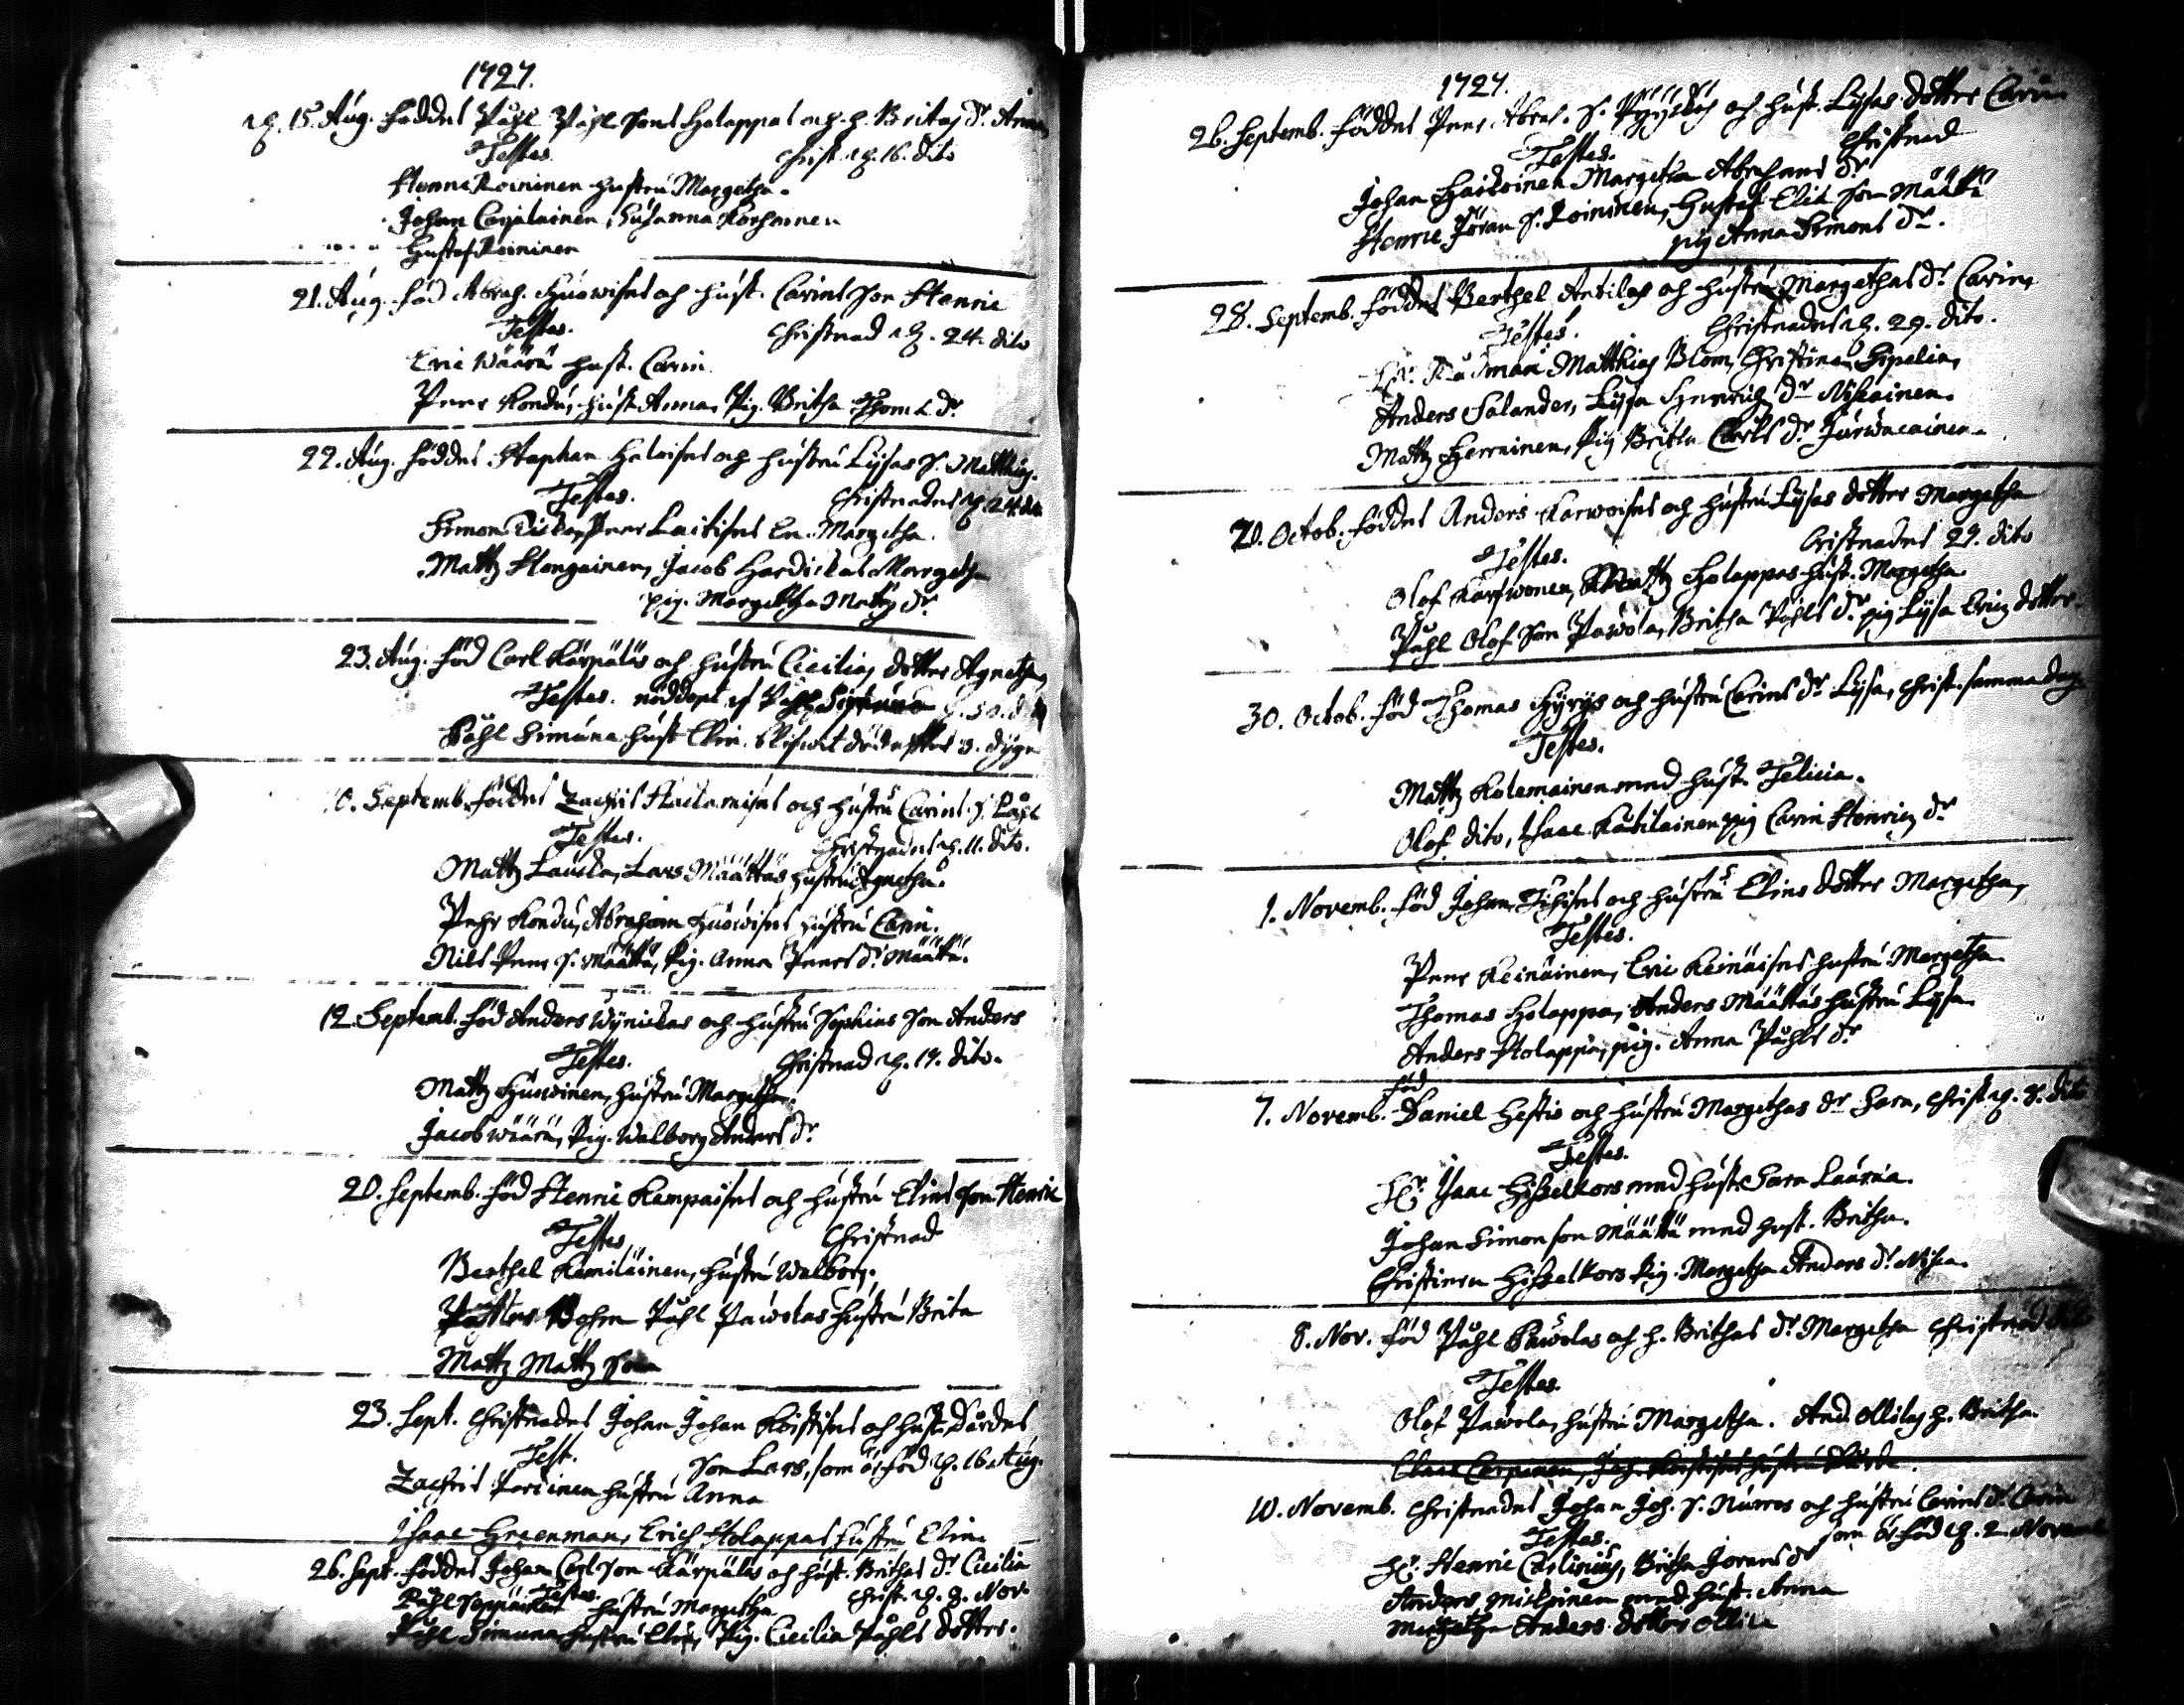 1727.
d. 15. Aug. föddes Påhl Påhl Sons Holappas och h. Britas dr. Anna
Testes. Christ. d. 16. dito
Henric Roininen hustru Margetha.
Johan Carjalainen, Susanna Korhoinen
Gustaf Roininen
21. Aug. föd Abrah. Huowises och hust. Carins Son Henric
Testes. Christnad d. 24. dito
Eric Wäärä hust. Carin
Peer Kondu, hust. Anna, Pig. Britha Thom. dr.
22. Aug. föddes Staphan Haloises och hustru Lysas S. Matthias.
Testes. Christnades d. 24. dito
Simon Peer Laitises En. Margetha.
Mattz Hengainen, Jacob Hardickas Margetha
pig. Margetha Mattz dr.
23. Aug. föd Carl Kärpäläs och hustru Cicilias dotter Agnetha,
Testes. nöddopt af Påhl
Påhl Simuna hust. Elin. blifwit död efter 3. dygn
0. Septemb. föddes Zachris Haclamises och hustru Carins S. Påhl
Testes. Christnades d. 11. dito.
Mattz Laucka, Lars Määttäs hustru Agnetha.
Pehr Kondu, Abraham Huowises hustru Carin.
Nils Peer S. Määttä, Pig. Anna Peers dr. Määttä.
12. Septemb. föd Anders Wynickas och hustru Sophias Son Anders
Testes. Christnad d. 17. dito.
Mattz Huowinen, hustru Margetha.
Jacob Wäärä, Pig. Walborg Anders dr.
20. Septemb. föd Henric Kempaises och hustru Elins Son Henric
Testes. Christnad
Berthel Kemiläinen, hustru Walborg.
Bohm Påhl Pawolas hustru Brita
Mattz Mattz Son
23. Sept. Christnades Johan Johan Koistises och hust. Dårdes
Test. Son Lars, som är föd d. 16. Aug.
Zachris Pariinen hustru Anna
Isaac Greenman, Erich Holappas hustru Elin.
26. Sept. föddes Johan Carl Son Kärpäläs och hust. Brithas dr. Cicilia
Testes. Christ. d. 3. Nov
Påhl Seppäinen hustru Margetha
Påhl Simuna hustru Elin, Pig. Cicilia Påhls dotter.
1727.
26. Septemb. föddes Peer Abra. S. Pyykös och hust. Lysas dotter Carin
Testes. Christnad
Johan Haikoinen Margetha Abrahams dr
Henric Jöran S. Roininen, Gustaf Elia Son Määttä
pig Anna Simons dr.
28. Septemb. föddes Berthel Antilas och hustru Margethas dr. Carin,
Testes. Christnades d. 29. dito.
Hr. Rådman Matthias Blom, Christina Sipelia,
Anders Salander, Lysa Henrich dr Niskainen.
Mattz Herrainen, Pig Britha Carls dr. Jurwacainen.
20. Octob. föddes Anders Karwoises och hustru Lysas dotter Margetha
Testes. Cristnades 29. dito
Olof Karfwonen, Mattz Holappas hust. Margetha
Påhl Olof Son Pawola, Britha Påhls dr. pig Lysa Erics dotter.
30. Octob. föd Thomas Hyrys och hustru Carins dr. Lysa, Christ. samma dag
Testes.
Mattz Kolemainen med hust. Felicia.
Olof dito, Isaac Kätiläinen pig Carin Henrics dr
1. Novemb. föd Johan Tihises och hustru Elins dotter Margetha,
Testes.
Peer Keinäinen, Eric Keinäises hustru Margetha
Thomas Holappa, Anders Määttäs hustru Lysa.
Anders Holappa, pig. Anna Påhls dr
föd
7. Novemb. Daniel Heftis och hustru Margethas dr Sara, Christ. d. 8. dito
Testes.
Hr. Isaac Hisselkors med hust. Sara Lauræa.
Johan Simonson Määttä med hust. Britha.
Christina Hisselkors Pig. Margetha Anders dr. Niska.
8. Nov. föd Påhl Pawolas och h. Brithas dr Margetha Christnad
Testes.
Olof Pawola, hustru Margetha. And. Ollilas h. Britha.
10. Novemb. Christnades Johan Joh. S. Nurros och hustru Carins dr. Carin
Testes. som är föd d. 2. Novemb
Hr. Henric Carlinius, Britha Jorans dr
Anders Mickoinen med hust. Anna
Margetha Anders dotter Ollila